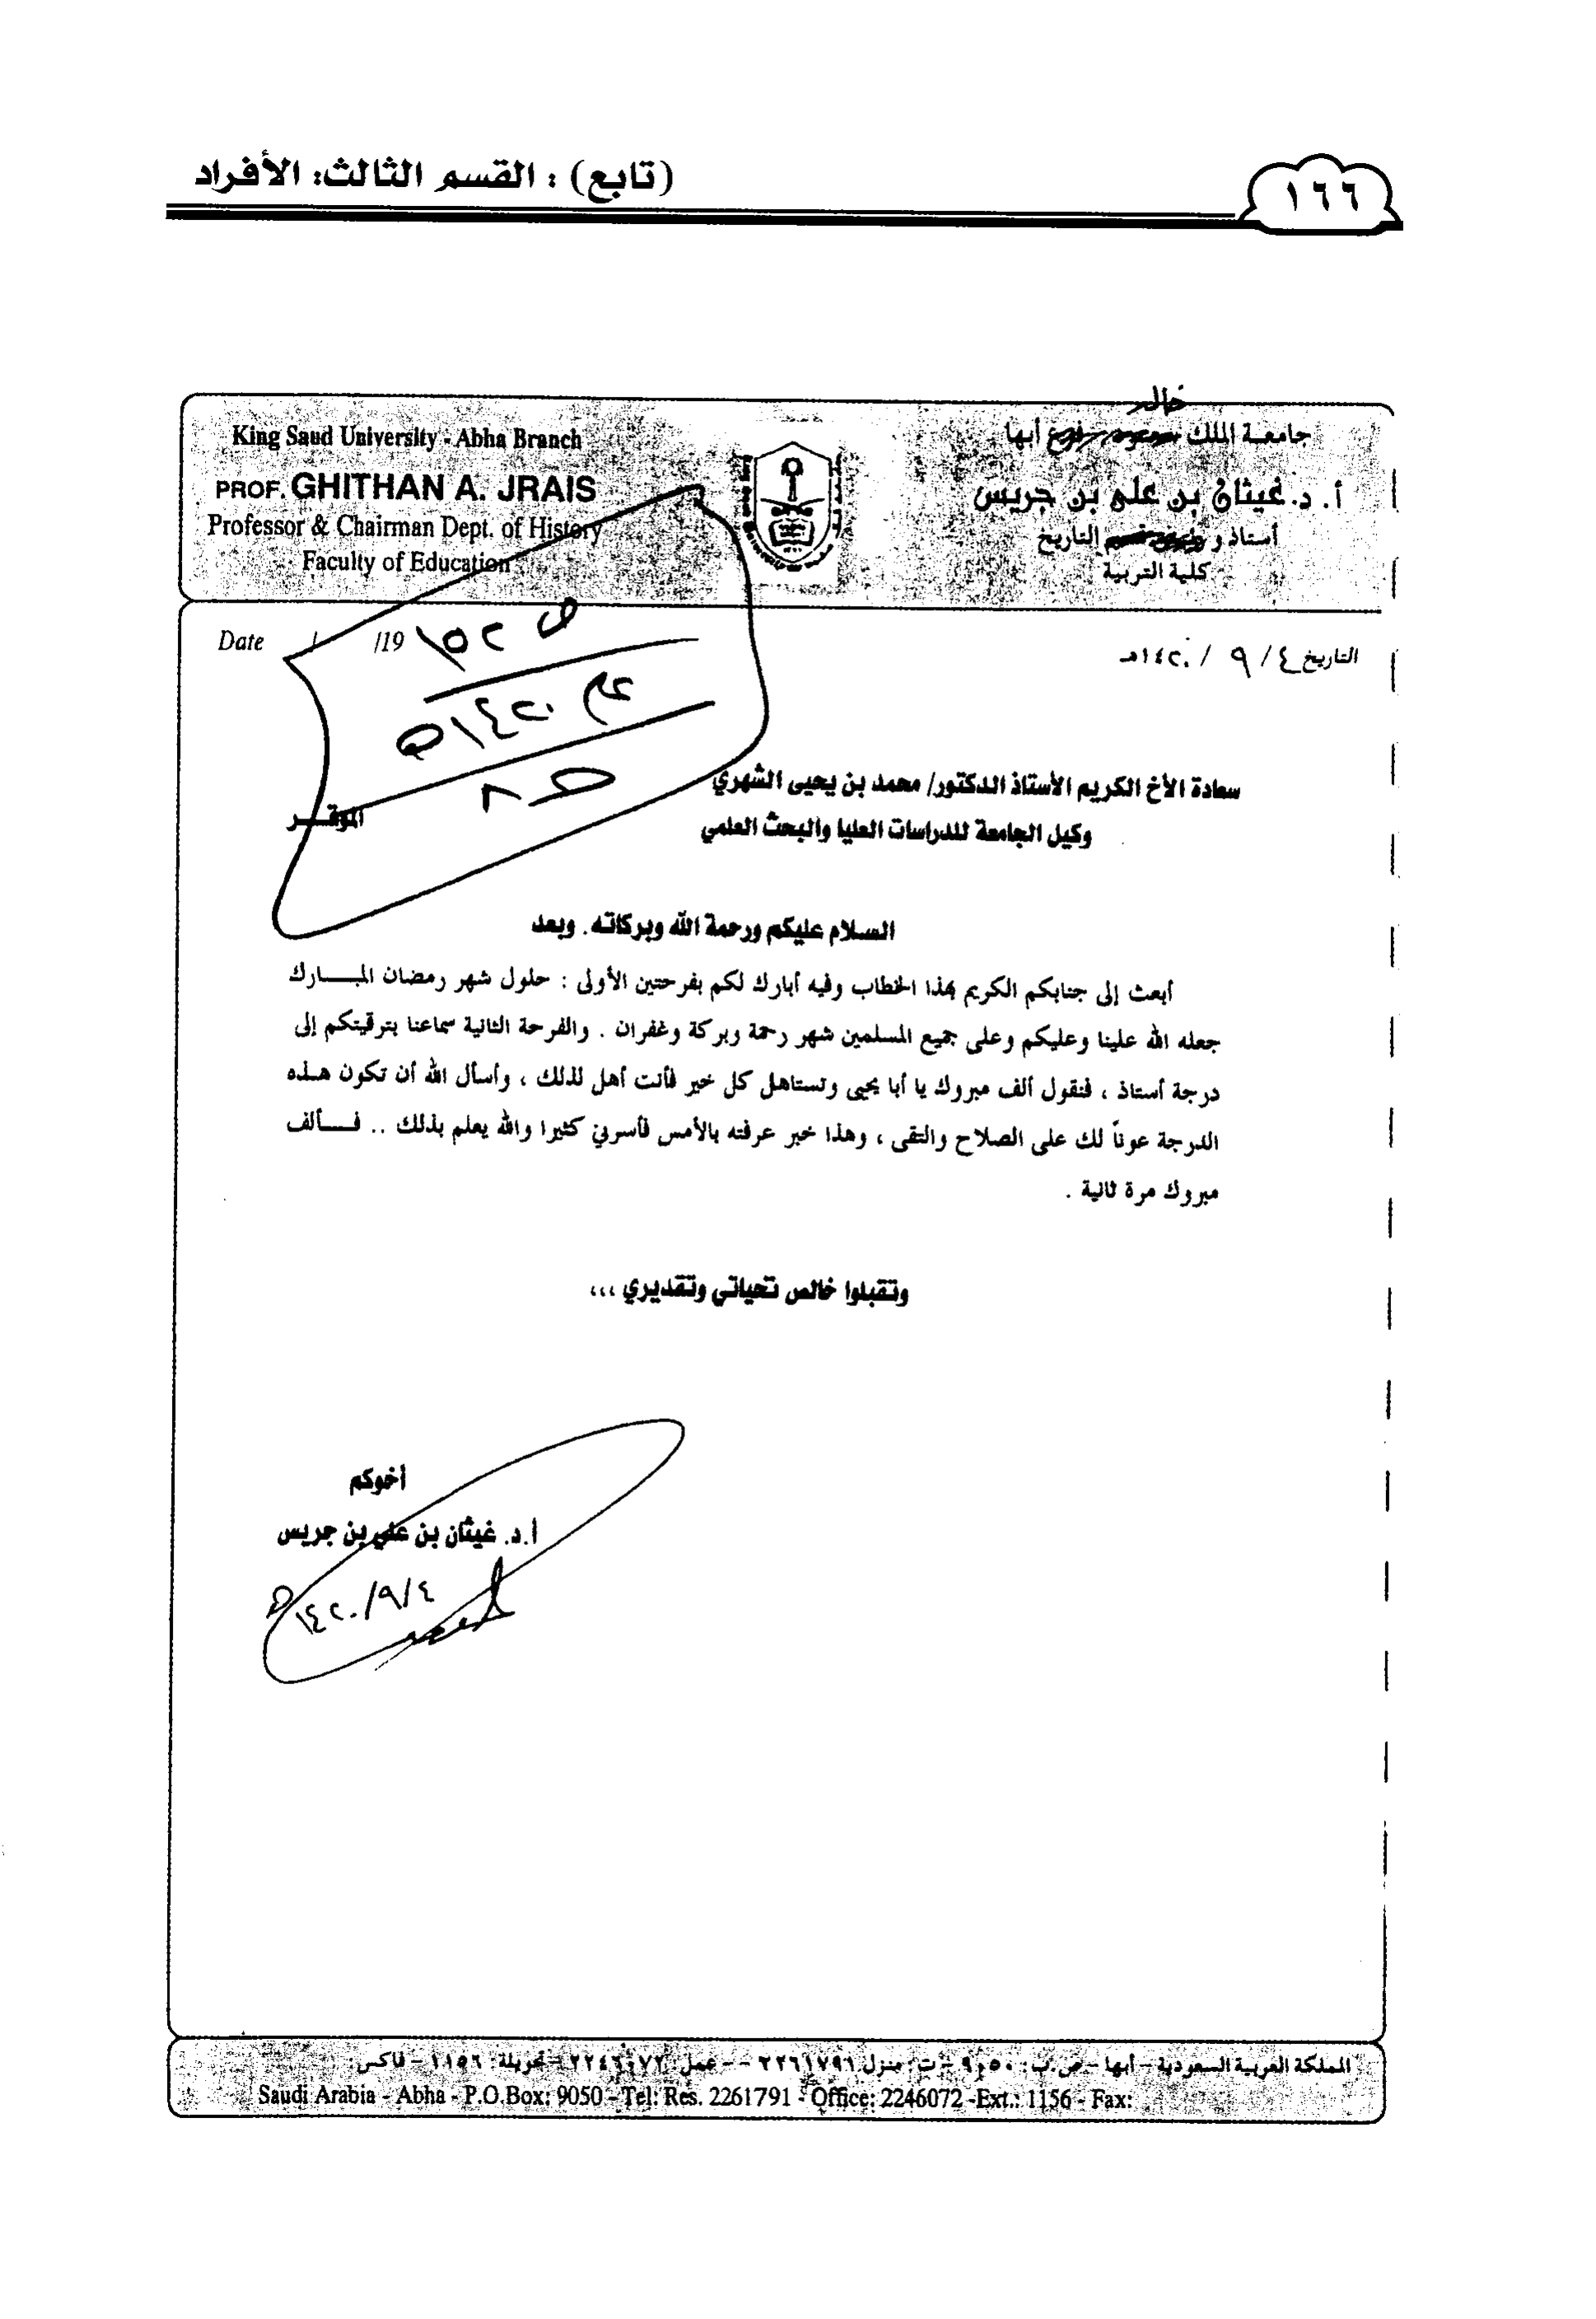 ١٦٦
(تابع) : القسم الثالث: الأفراد
خالد
جامعة الملك سعود - فرع أبها
أ. د. غيثان بن علي بن جريس
أستاذ و رئيس قسم التاريخ
كلية التربية
King Saud University - Abha Branch
PROF. GHITHAN A. JRAIS
Professor & Chairman Dept. of History
Faculty of Education
التاريخ ٤ / ٩ / ١٤٢٠هـ
Date / /19
١٥٢
عام ١٤٢٠هـ
سعادة الأخ الكريم الأستاذ الدكتور/ محمد بن يحيى الشهري
وكيل الجامعة للدراسات العليا والبحث العلمي الموقـــر
السلام عليكم ورحمة الله وبركاته. وبعد
أبعث إلى جنابكم الكريم بهذا الخطاب وفيه أبارك لكم بفرحتين الأولى : حلول شهر رمضان المبـــارك
جعله الله علينا وعليكم وعلى جميع المسلمين شهر رحمة وبركة وغفران . والفرحة الثانية سماعنا بترقيتكم إلى
درجة أستاذ ، فنقول ألف مبروك يا أبا يحيى وتستاهل كل خير فأنت أهل لذلك ، وأسأل الله أن تكون هـذه
الدرجة عوناً لك على الصلاح والتقى ، وهذا خبر عرفته بالأمس فأسرني كثيرا والله يعلم بذلك .. فـــألف
مبروك مرة ثانية .
وتقبلوا خالص تحياتي وتقديري ،،،
أخوكم
أ.د. غيثان بن علي بن جريس
١٤٢٠/٩/٤هـ
المملكة العربية السعودية - أبها - ص.ب: ٩٠٥٠ - ت: منزل ٢٢٦١٧٩١ - - عمل: ٢٢٤٦٠٧٢ - تحويلة: ١١٥٦ - فاكس:
Saudi Arabia - Abha - P.O.Box: 9050 - Tel: Res. 2261791 - Office: 2246072 -Ext.: 1156 - Fax: